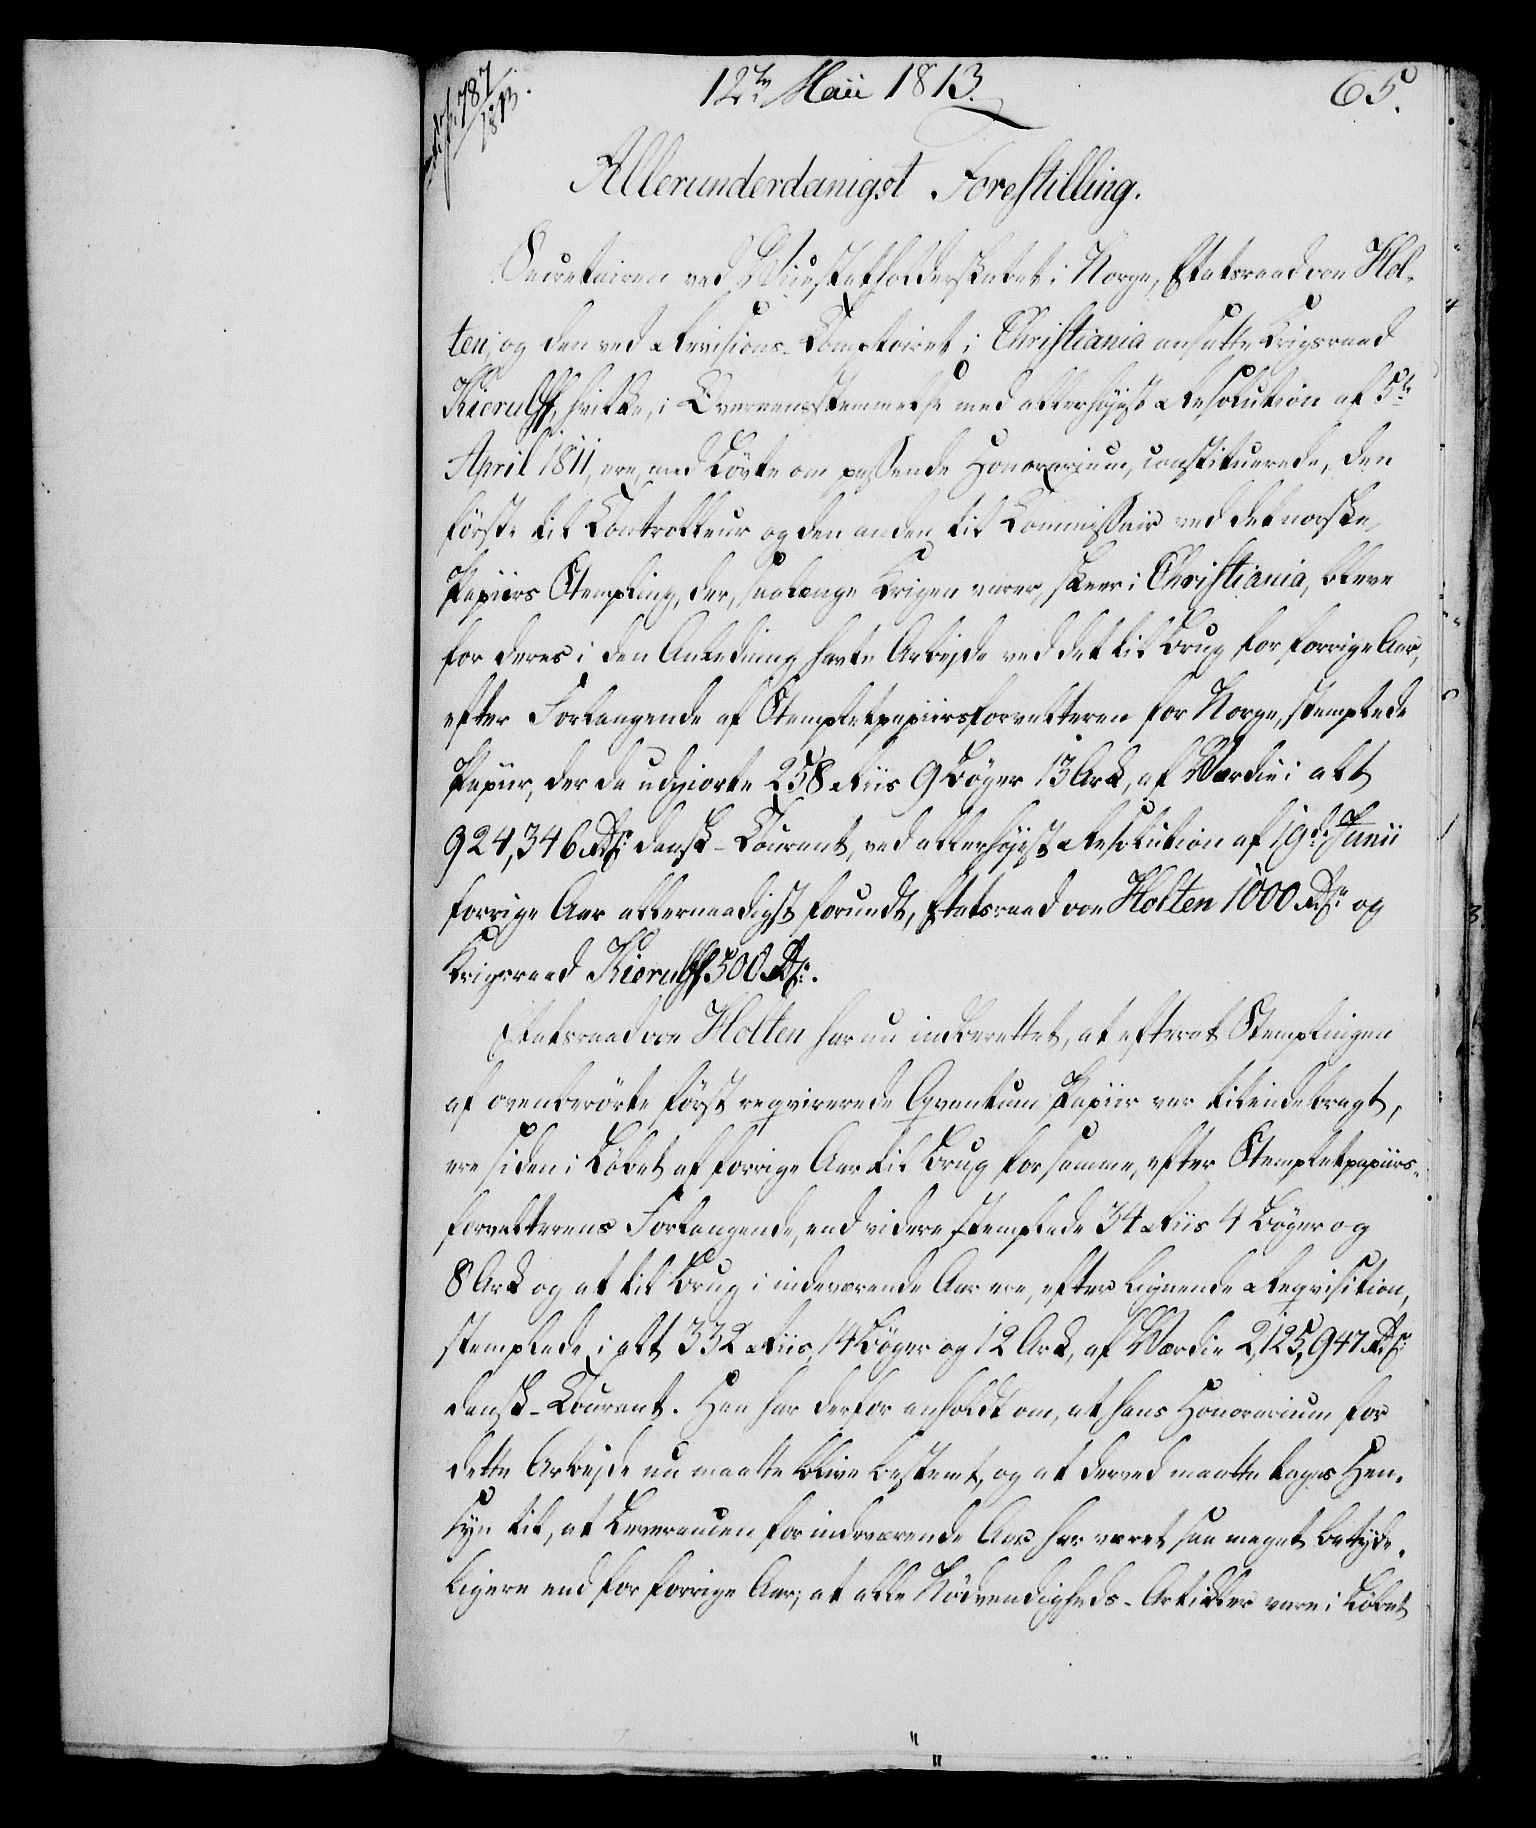 787
1813.
12te Maii 1813.
65.
Allerunderdanigst Forestilling.
Secretairen ved Viicestatholderskabet i Norge, Etatsraad von Hol-
ten, og den ved Revisions-Comptoiret i Christiania ansatte Krigsraad
Kierulff, hvilke, i Overeensstemmelse med allerhøjest Resolution af 5te
April 1811, ere, med Løvte om passende Honorarium, constituerede, den
første til Controlleur og den anden til Commissair ved det norske
Papiirs Stempling, der, saalænge Krigen varer, skeer i Christiania, bleve
for deres i den Anledning havte Arbejde ved det til Brug for forrige Aar,
efter Forlangende af Stempletpapiirsforvalteren for Norge, stemplede
Papiir, der da udgiorte 258 Riis 9 Bøger 13 Ark, af Værdie i alt
924,346 Rd: dansk-Courant, ved allerhøjest Resolution af 19de Junii
forrige Aar allernaadigst forundt, Etatsraad von Holten 1000 Rd: og
Krigsraad Kierulff 500 Rd:.
Etatsraad von Holten har nu indberettet, at efterat Stemplingen
af ovenberørte først reqvirerede Qvantum Papiir var tilendebragt,
ere siden i Løbet af forrige Aar til Brug for samme, efter Stempletpapiirs-
forvalterens Forlangende, end videre stemplede 34 Riis 4 Bøger og
8 Ark og at til Brug i indeværende Aar ere, efter lignende Reqvisition,
stemplede i alt 332 Riis, 14 Bøger og 12 Ark, af Værdie 2,125,947 Rd:
dansk-Courant. Han har derfor anholdt om, at hans Honorarium for
dette Arbejde nu maatte blive bestemt, og at derved maatte tages Hen-
syn til, at Leverancen for indeværende Aar har været saa meget betyde-
ligere end for forrige Aar; at alle Nødvendigheds-Artikler vare i Løbet